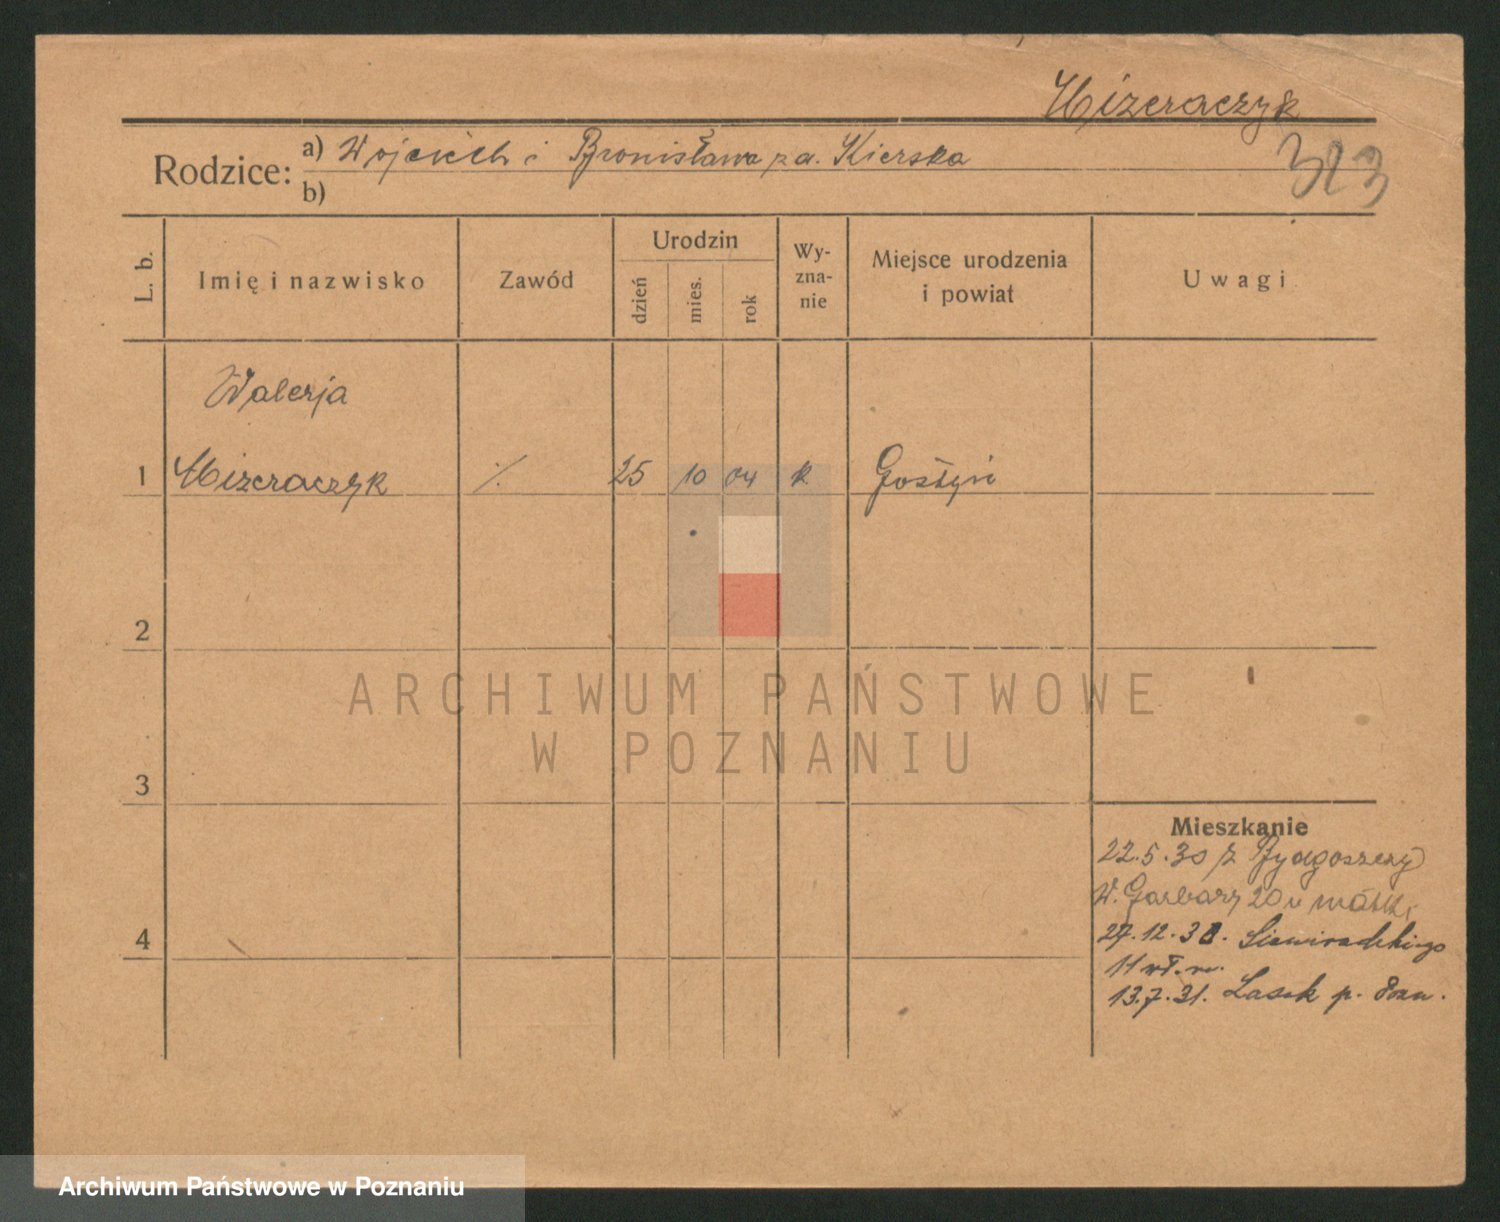 Mizeraczyk
323
Rodzice: a) Wojciech i Bronisława za. Kierska
b)
L. b. Imię i nazwisko Zawód Urodzin dzień mies. rok Wyznanie Miejsce urodzenia i powiat Uwagi
Walerja
1 Mizeraczyk ./. 25 10 04 k Gostyń
2
3
4
Mieszkanie
22.5.30 z Bydgoszczy
W. Garbary 20 u matki
27.12.30. Siemiradzkiego
11 wł. m.
13.7.31. Lasek p. Pozn.
ARCHIWUM PAŃSTWOWE
W POZNANIU
Archiwum Państwowe w Poznaniu